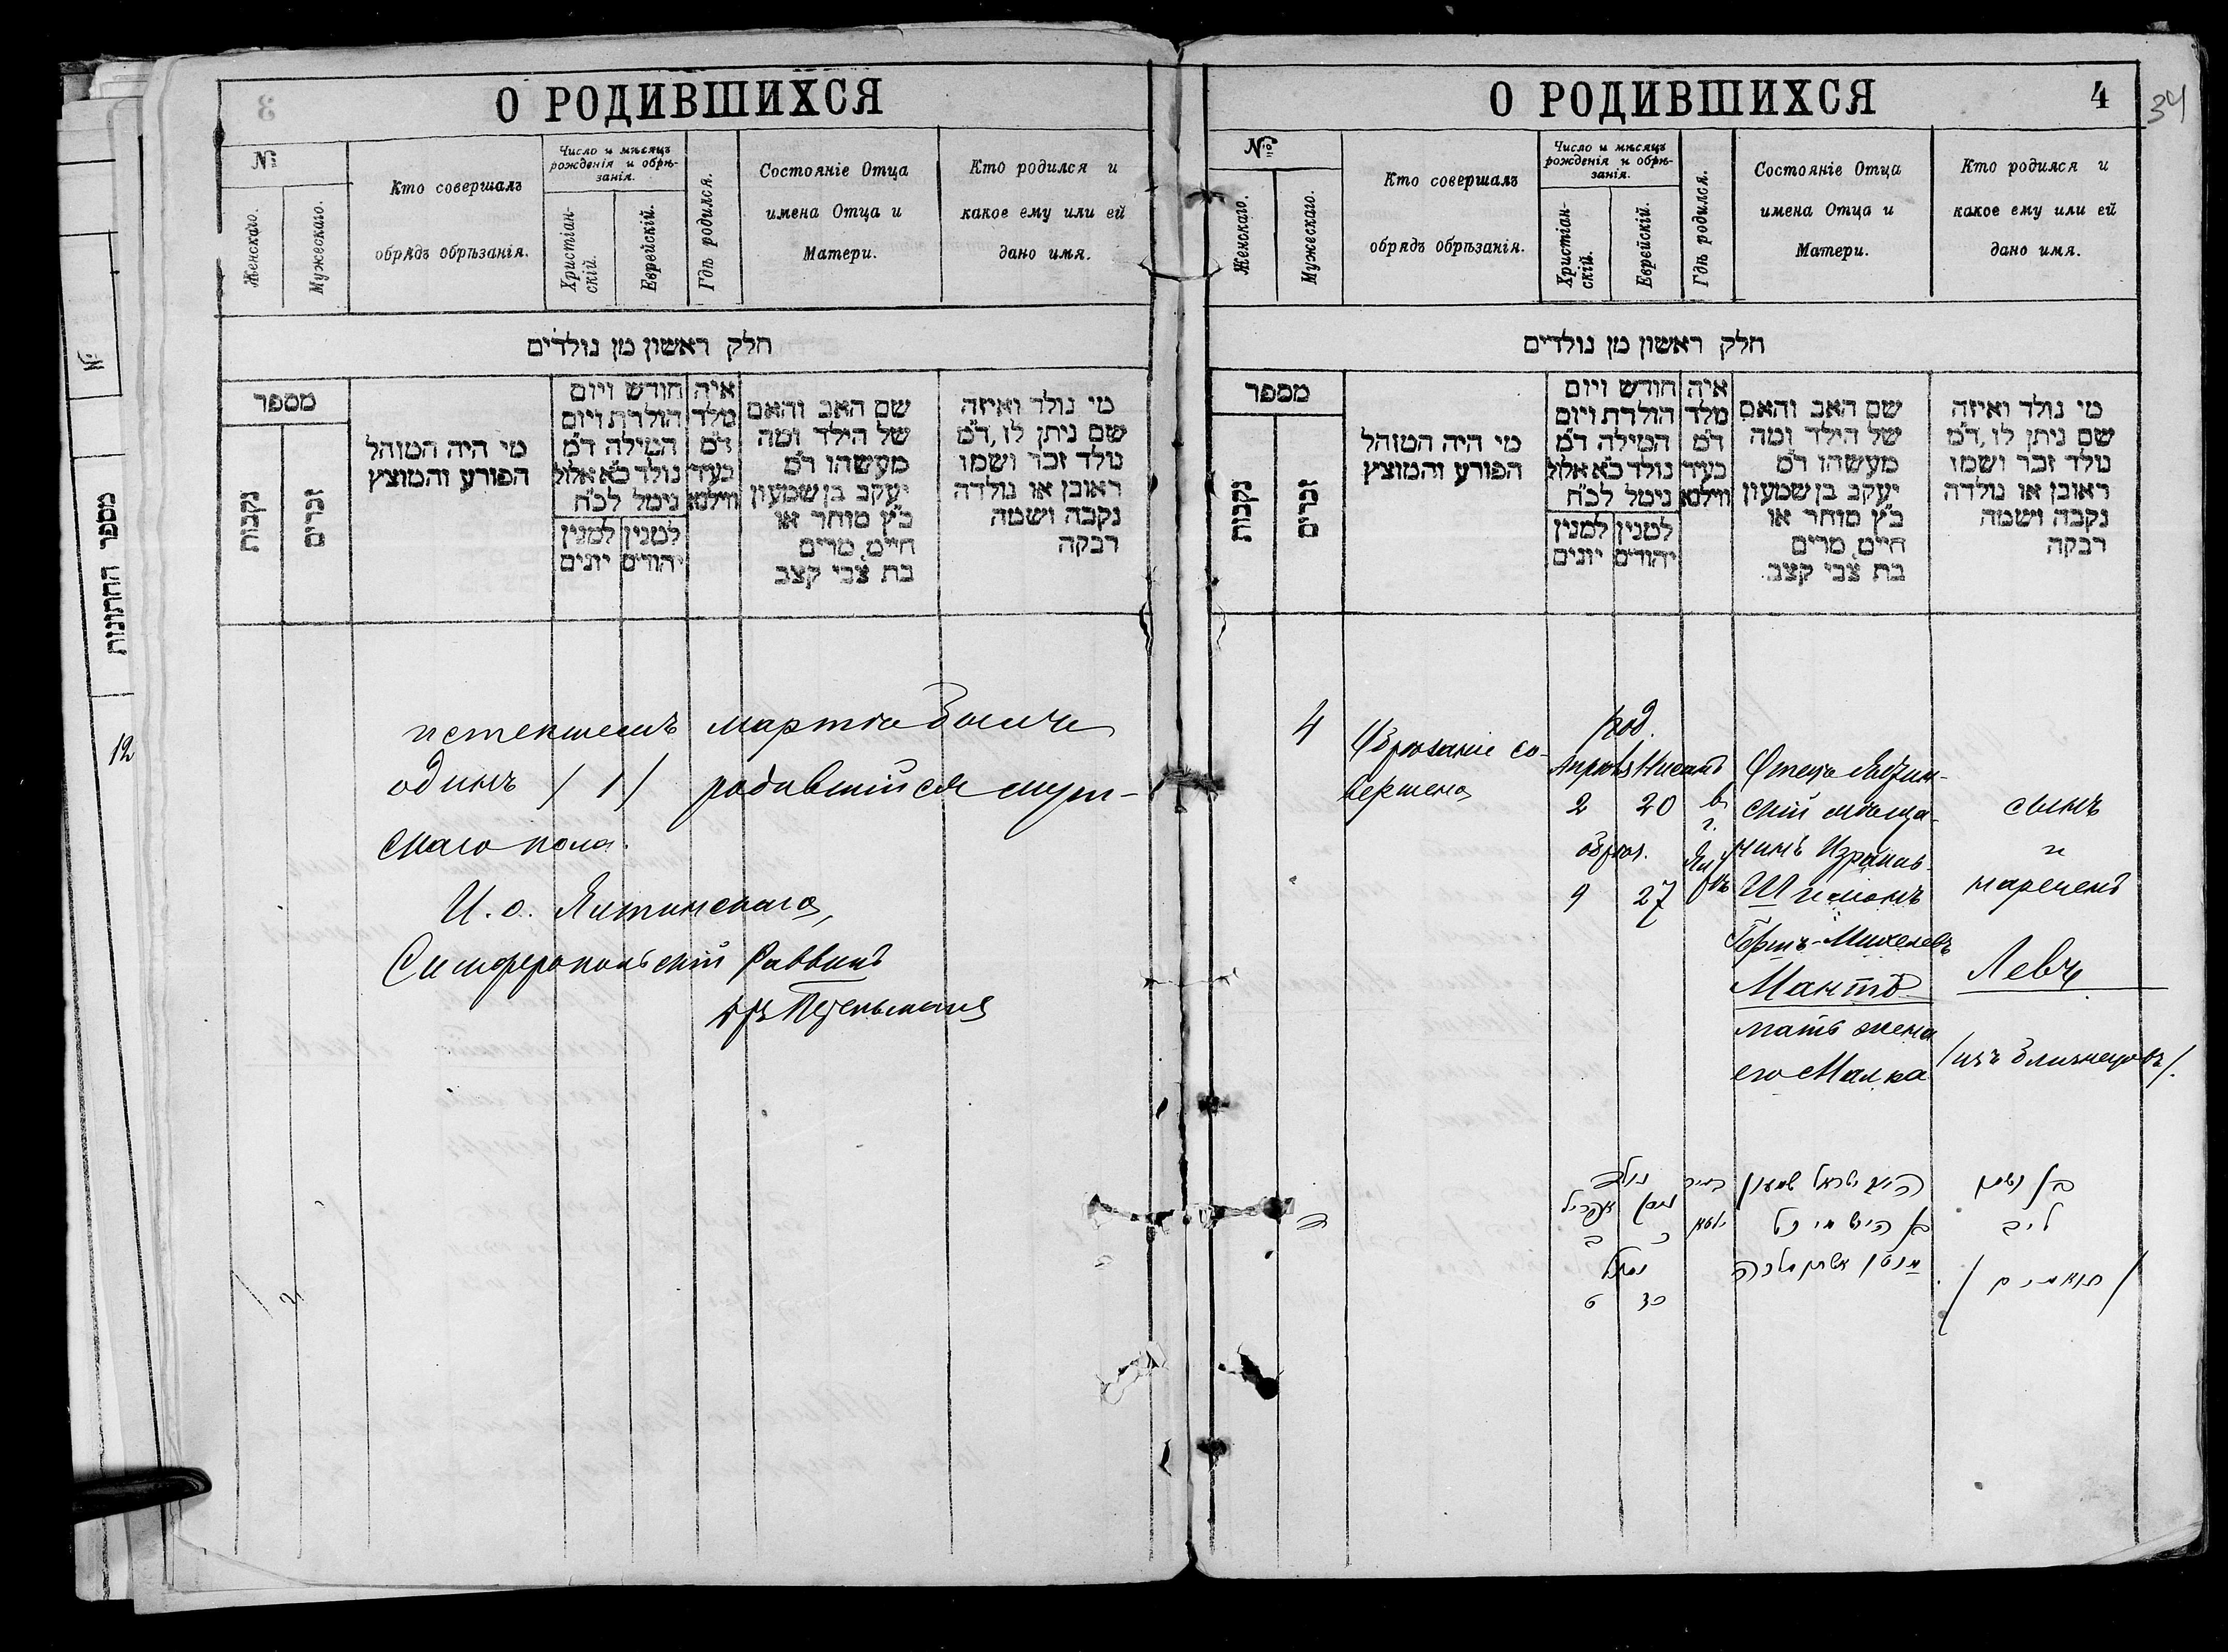 О РОДИВШИХСЯ
№
Женскаго.
Мужескаго.
Кто совершалъ
обрядъ обрѣзанія.
Число и мѣсяцъ
рожденія и обрѣ-
занія.
Христіан-
скій.
Еврейскій.
Гдѣ родился.
Состояніе Отца
имена Отца и
Матери.
Кто родился и
какое ему или ей
дано имя.
חלק ראשון מן נולדים
מספר
נקבות
זכרים
מי היה המוהל
הפורע והמוצץ
חודש ויום
הולדת ויום
המילה ד״מ
נולד כ״א אלול
נימל לכ״ח
למנין למנין
יהודים יונים
איה
מלד
ד״מ
בעיר
ווילנא
שם האב והאם
של הילד ומה
מעשהו ד״מ
יעקב בן שמעון
כ״ץ סוחר או
חייט, מרים
בת צבי קצב
מי נולד ואיזה
שם ניתן לו, ד״מ
נולד זכר ושמו
ראובן או נולדה
נקבה ושמה
רבקה
истекшемъ мартѣ былъ
одинъ /1/ родившійся муж-
скаго пола.
И. о. Ялтинскаго,
Симферопольскій Раввинъ
№
מספר החתונות
12
О РОДИВШИХСЯ
4
34
№
Женскаго.
Мужескаго.
Кто совершалъ
обрядъ обрѣзанія.
Число и мѣсяцъ
рожденія и обрѣ-
занія.
Христіан-
скій.
Еврейскій.
Гдѣ родился.
Состояніе Отца
имена Отца и
Матери.
Кто родился и
какое ему или ей
дано имя.
חלק ראשון מן נולדים
מספר
נקבות
זכרים
מי היה המוהל
הפורע והמוצץ
חודש ויום
הולדת ויום
המילה ד״מ
נולד כ״א אלול
נימל לכ״ח
למנין למנין
יהודים יונים
איה
מלד
ד״מ
בעיר
ווילנא
שם האב והאם
של הילד ומה
מעשהו ד״מ
יעקב בן שמעון
כ״ץ סוחר או
חייט, מרים
בת צבי קצב
מי נולד ואיזה
שם ניתן לו, ד״מ
נולד זכר ושמו
ראובן או נולדה
נקבה ושמה
רבקה
4
Обрѣзаніе со-
вершено
род.
Апрѣль Нисанъ
2 20
обрѣз.
9 27
въ
г.
Ял
тѣ
Отецъ
скій мѣща-
нинъ Израиль-
Шимонъ
Гершъ-Михелевъ
Мантъ
мать жена
его Малка
сынъ
и
нареченъ
Левъ
/изъ близнецовъ/.
ד
נולד
ניסן אפריל
כ ב
נימול
כז ט
בעיר
יאלטא
ישראל שמעון
בן הירש מיכל
מנט אשתו מלכה
בן ושמו
ליב
/ תואמים /